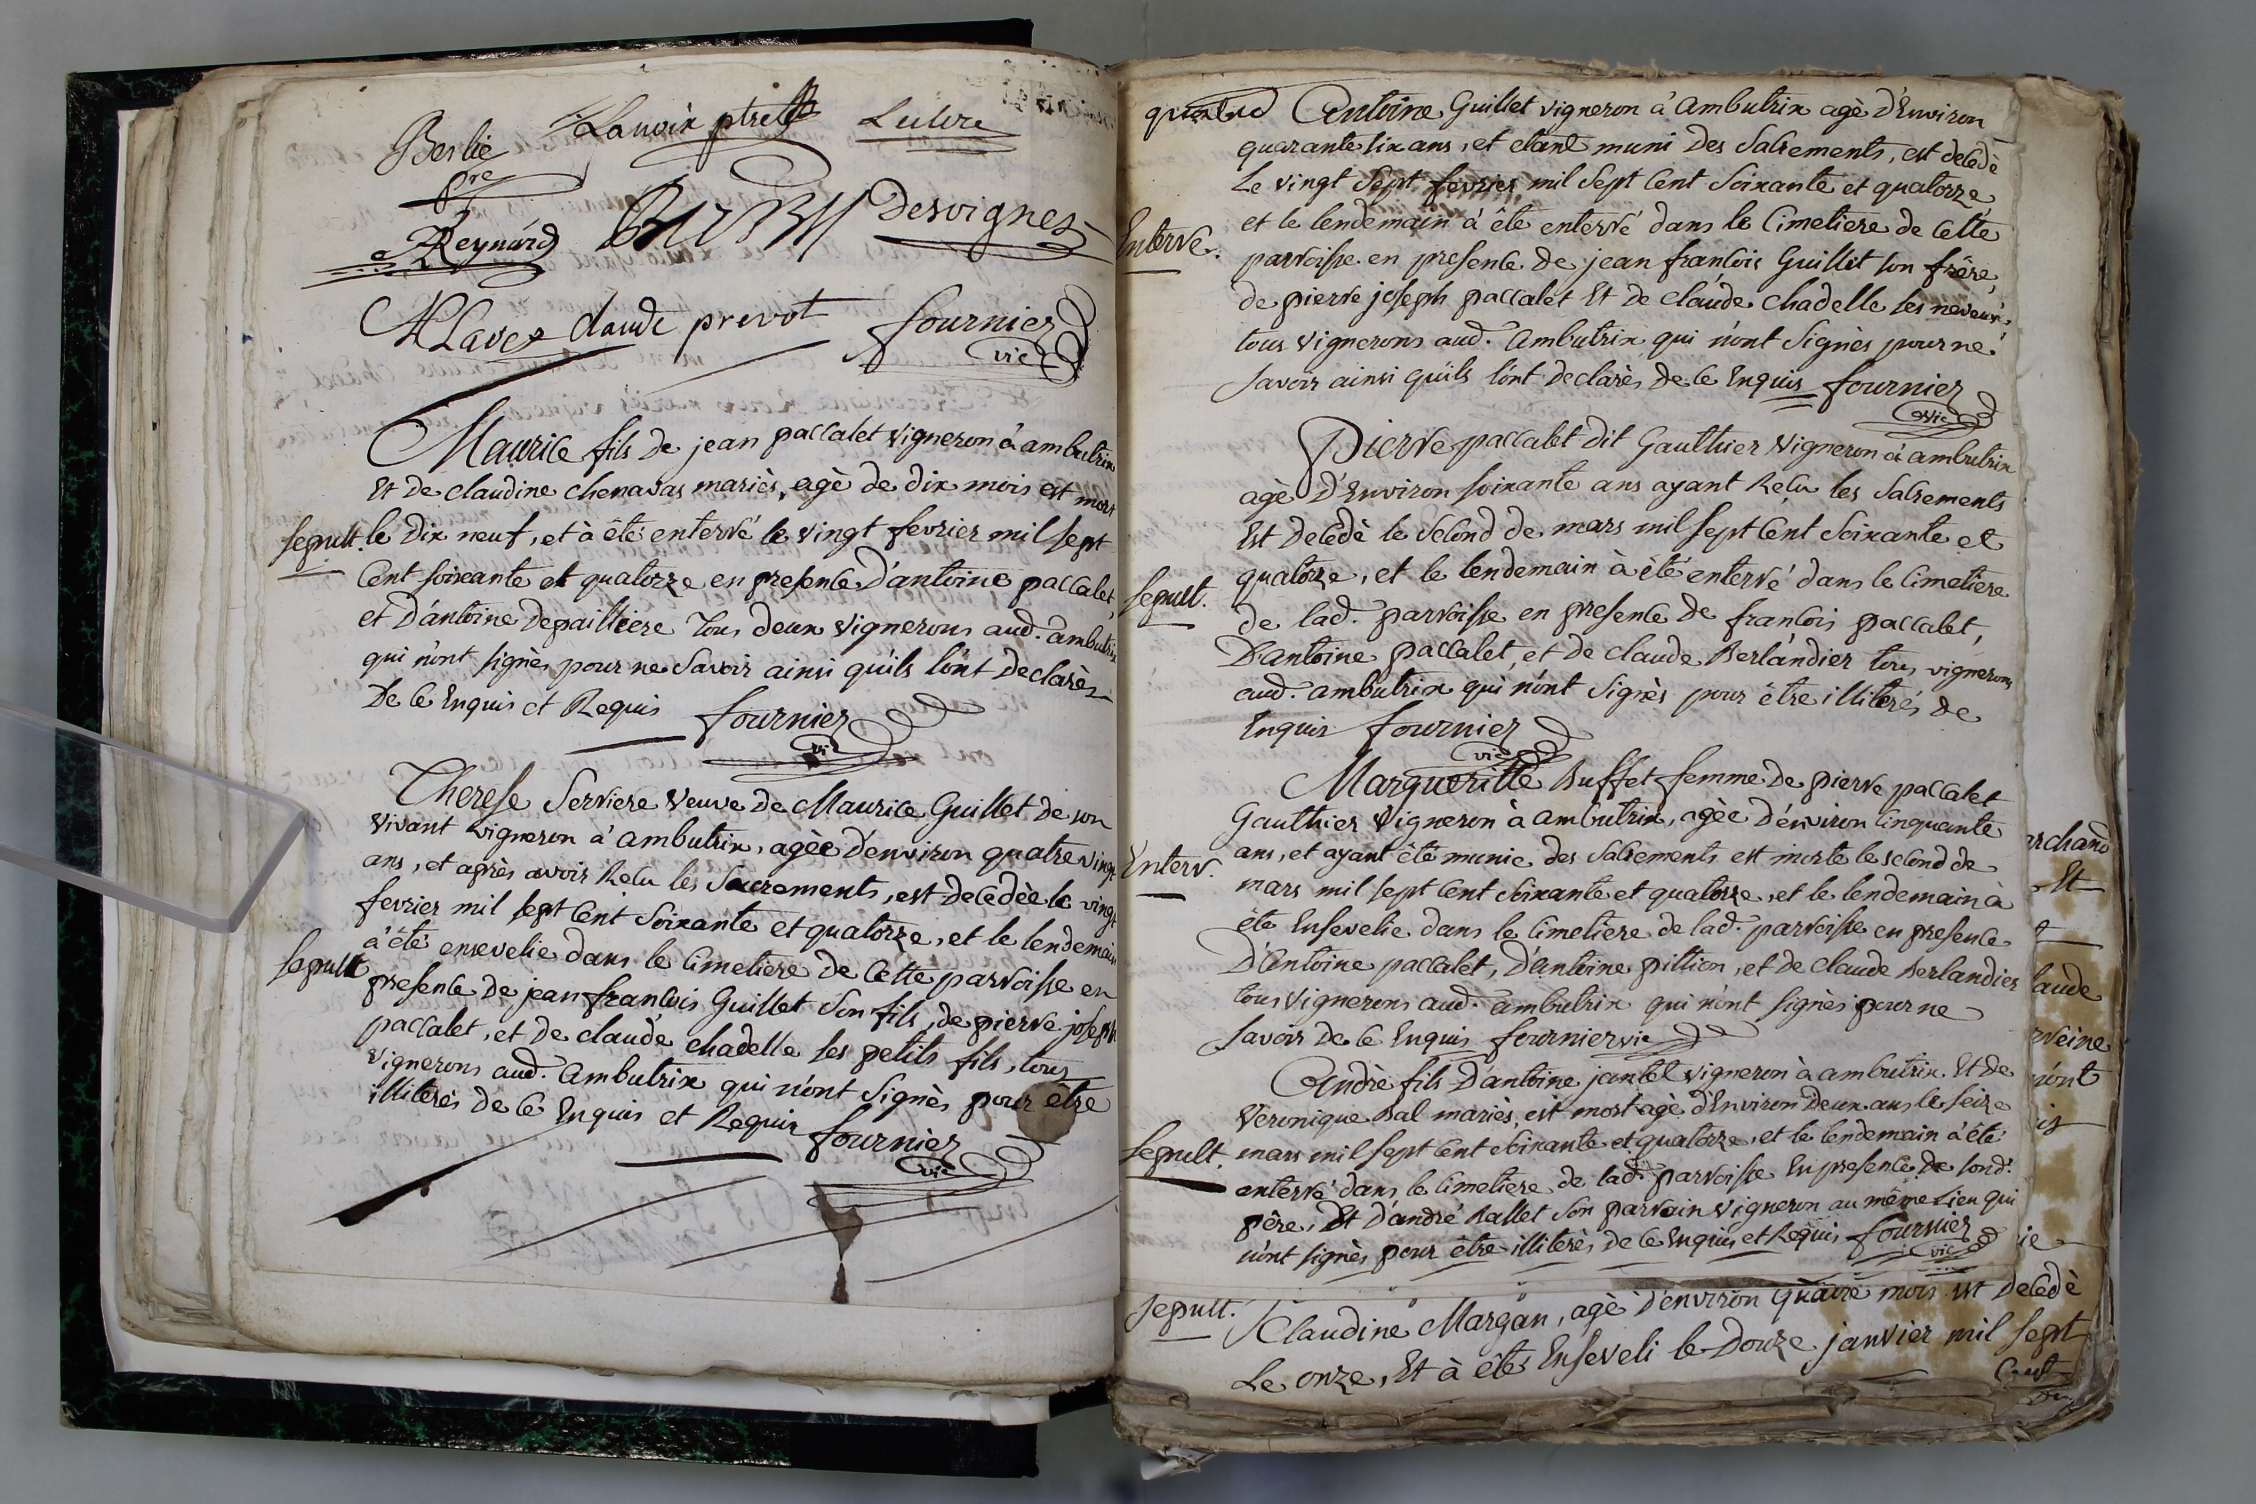 Berlie Lanoix ptre Lulvre
ptre
Reynard Desvignes
Claude prevot fournier
vic
Maurice fils de jean paccalet vigneron à ambutrix
Et de claudine chenavas mariès, agè de dix mois est mort
sepult. le dix neuf, et à été enterré le vingt fevrier mil sept
cent soixante et quatorze en presence d'antoine paccalet,
et d'antoine depailliere tous deux vignerons aud. ambutrix
qui n'ont signès pour ne savoir ainsi qu'ils l'ont declarès
de ce Enquis et Requis fournier
vic
Therese Serriere veuve de Maurice Guillet de son
vivant vigneron à ambutrix, agèe d'environ quatre vingt
ans, et après avoir Recu les Sacrements, est decedèe le vingt
fevrier mil sept cent soixante et quatorze, et le lendemain
sepult. à été ensevelie dans le cimetiere de cette parroisse en
presence de jean francois Guillet son fils, de pierre joseph
paccalet, et de claude chadelle ses petits fils, tous
vignerons aud. ambutrix qui n'ont signès pour être
illiterés de ce Enquis et Requis fournier
vic
Antoine Guillet vigneron à ambutrix agè d'Environ
quarante six ans, et etant muni des Sacrements, est decedè
Le vingt sept fevrier mil sept cent soixante et quatorze
Enterré. et le lendemain à été enterré dans le cimetiere de cette
parroisse en presence de jean francois Guillet son frère,
de pierre joseph paccalet Et de claude chadelle ses neveux,
tous vignerons aud. ambutrix qui n'ont signès pour ne
savoir ainsi qu'ils l'ont declarès de ce Enquis fournier
vic
Pierre paccalet dit Gauthier vigneron à ambutrix
agè d'Environ soixante ans ayant Reçu les sacrements
Est decedè le second de mars mil sept cent soixante et
sepult. quatorze, et le lendemain à été enterré dans le cimetiere
de lad. parroisse en presence de francois paccalet,
D'antoine paccalet, et de claude Berlandier tous vignerons
aud. ambutrix qui n'ont signès pour être illiterés de
Enquis fournier
vic
Margueritte Buffet femme de pierre paccalet
Gauthier vigneron à ambutrix, agèe d'environ cinquante
Enterr. ans, et ayant été munie des sacrements est morte le second de
mars mil sept cent soixante et quatorze, et le lendemain à
été Ensevelie dans le cimetiere de lad. parroisse en presence
D'antoine paccalet, d'antoine pittion, et de claude Berlandier
tous vignerons aud. ambutrix qui n'ont signès pour ne
savoir de ce Enquis fournier vic
Andrè fils d'antoine jantet vigneron à ambutrix Et de
Veronique Bal mariès, est mort agè d'Environ deux ans le seize
sepult. mars mil sept cent soixante et quatorze, et le lendemain à été
enterré dans le cimetiere de lad. parroisse En presence de sond.
père, Et d'andré Ballet son parrain vigneron au même Lieu qui
n'ont signès pour être illiterès de ce Enquis et Requis fournier
vic
sepult. Claudine Margan, agè d'environ quatre mois est decedè
Le onze, Et à été Enseveli le douze janvier mil sept
cent